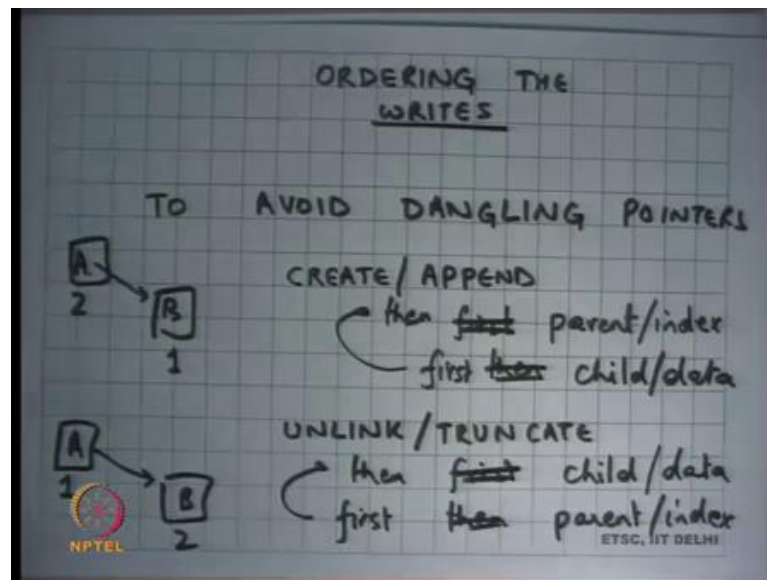 ORDERING THE
WRITES
TO AVOID DANGLING POINTERS
A
2
B
1
CREATE/APPEND
then first parent/index
first then child/data
A
1
B
2
UNLINK/TRUNCATE
then first child/data
first then parent/index
NPTEL
ETSC, IIT DELHI